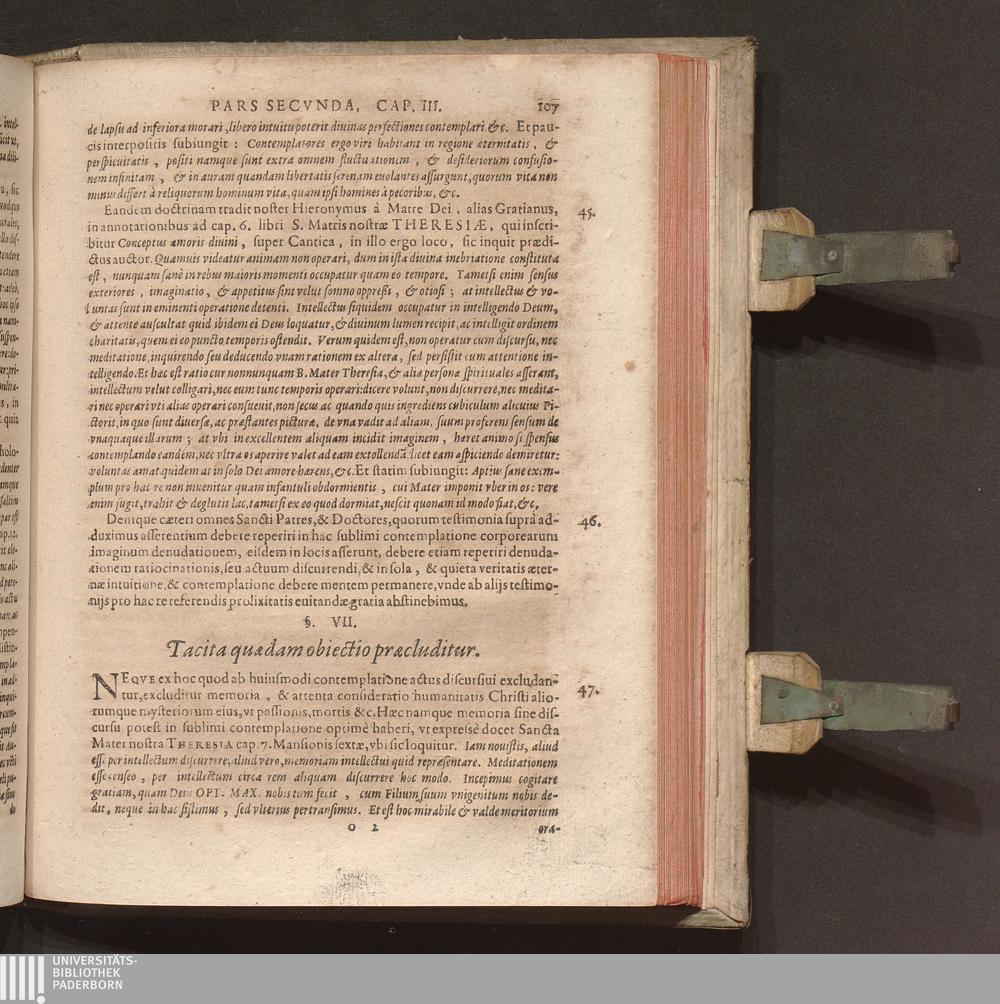 PARS SECVNDA, CAP. III. 107
de lapsu ad inferiora morari, libero intuitu poterit diuinas perfectiones contemplari &c. Et pau-
cis interpositis subiungit: Contemplatores ergo viri habitant in regione æternitatis, &
perspicuitatis, positi namque sunt extra omnem fluctuationem, & desideriorum confusio-
nem infinitam, & in auram quandam libertatis serenam euolantes assurgunt, quorum vita non
minus differt à reliquorum hominum vita, quam ipsi homines à pecoribus, &c.
Eandem doctrinam tradit noster Hieronymus à Matre Dei, alias Gratianus, 45.
in annotationibus ad cap. 6. libri S. Matris nostræ THERESIÆ, qui inscri-
bitur Conceptus amoris diuini, super Cantica, in illo ergo loco, sic inquit prædi-
ctus auctor. Quamuis videatur animam non operari, dum in ista diuina inebriatione constituta
est, nunquam sanè in rebus maioris momenti occupatur quam eo tempore. Tametsi enim sensus
exteriores, imaginatio, & appetitus sint velut somno oppressi, & otiosi; at intellectus & vo-
luntas sunt in eminenti operatione detenti. Intellectus siquidem occupatur in intelligendo Deum,
& attente auscultat quid ibidem ei Deus loquatur, & diuinum lumen recipit, ac intelligit ordinem
charitatis, quem ei eo puncto temporis ostendit. Verum quidem est, non operatur cum discursu, nec
meditatione, inquirendo seu deducendo vnam rationem ex altera, sed persistit cum attentione in-
telligendo. Et hac est ratio cur nonnunquam B. Mater Theresia, & alia personæ spirituales asserant,
intellectum velut colligari, nec eum tunc temporis operari: dicere volunt, non discurrere, nec medita-
ri nec operari vti alias operari consueuit, non secus ac quando quis ingrediens cubiculum alicuius Pi-
ctoris, in quo sunt diuersæ, ac præstantes picturæ, de vna vadit ad aliam, suum proferens sensum de
vnaquaque illarum; at vbi in excellentem aliquam incidit imaginem, hæret animo suspensus
contemplando eandem, nec vltra os aperire valet ad eam extollendã, licet eam aspiciendo demiretur:
voluntas amat quidem at in solo Dei amore hærens, &c. Et statim subiungit: Aptius sane exem-
plum pro hac re non inuenitur quam infantuli obdormientis, cui Mater imponit vber in os: vere
enim sugit, trahit & deglutit lac, tametsi ex eo quod dormiat, nescit quonam id modo fiat, &c.
Denique cæteri omnes Sancti Patres, & Doctores, quorum testimonia suprà ad- 46.
duximus asserentium debere reperiri in hac sublimi contemplatione corporearum
imaginum denudationem, eisdem in locis asserunt, debere etiam reperiri denuda-
tionem ratiocinationis, seu actuum discurrendi, & in sola, & quieta veritatis æter-
næ intuitione, & contemplatione debere mentem permanere, vnde ab alijs testimo-
nijs pro hac re referendis prolixitatis euitandæ gratia abstinebimus.
§. VII.
Tacita quædam obiectio præcluditur.
NEQVE ex hoc quod ab huiusmodi contemplatione actus discursiui excludan- 47.
tur, excluditur memoria, & attenta consideratio humanitatis Christi alio-
rumque mysteriorum eius, vt passionis, mortis &c. Hæc namque memoria sine dis-
cursu potest in sublimi contemplatione optimè haberi, vt expresè docet Sancta
Mater nostra THERESIA cap. 7. Mansionis sextæ, vbi sic loquitur. Iam nouistis, aliud
esse per intellectum discurrere, aliud vero, memoriam intellectui quid repræsentare. Meditationem
esse censeo, per intellectum circa rem aliquam discurrere hoc modo. Incepimus cogitare
gratiam, quam Deus OPT. MAX. nobis tum fecit, cum Filium suum vnigenitum nobis de-
dit, neque in hac sistimus, sed vlterius pertransimus. Et est hoc mirabile & valde meritorium
O 2 ora-
UNIVERSITÄTS-
BIBLIOTHEK
PADERBORN